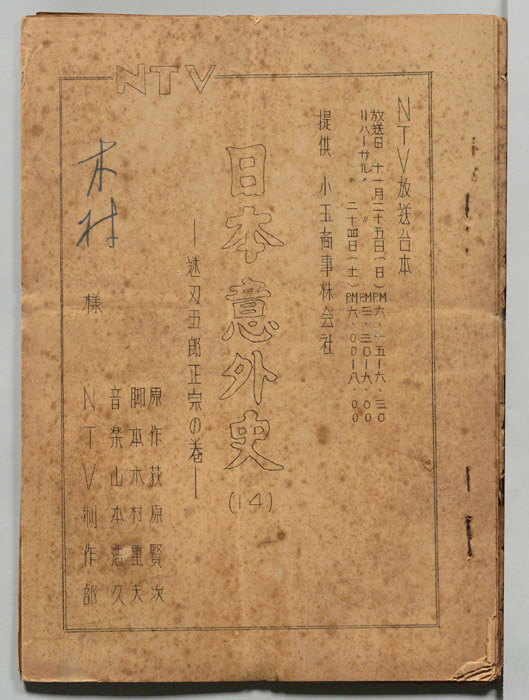 NTV
NTV放送台本
放送日 十一月二十五日(日)PM六、一五-六、三〇
リハーサル 〃 PM三、三〇-六、〇〇
二十四日(土)PM六、〇〇-八、〇〇
提供 小玉商事株会社
日本意外史(14)
五郎正宗の巻
木村
様
原作 萩原賢次
脚本 木村重夫
音楽 山本浩久
NTV制作部